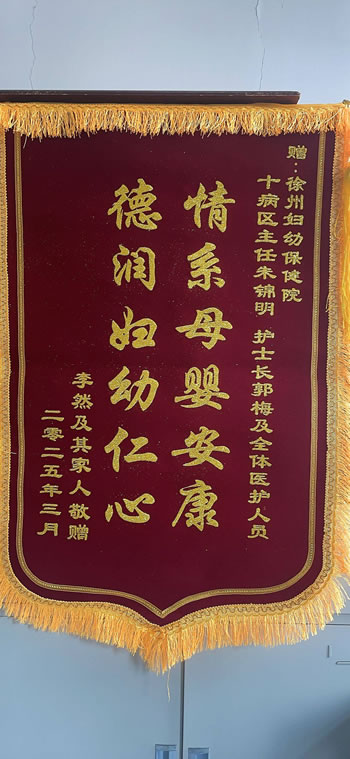 赠:徐州妇幼保健院
十病区主任朱锦明 护士长郭梅及全体医护人员
情系母婴安康
德润妇幼仁心
李然及其家人敬赠
二零二五年三月